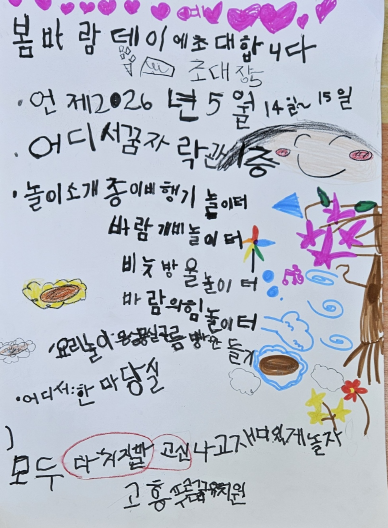 봄바람데이에초대합니다
초대장
·언제2026년5월14일~15일
·어디서꿈자락관1층
·놀이소개종이비행기놀이터
바람개비놀이터
비눗방울놀이터
바람의힘놀이터
요리놀이: 빵만들기
·어디서:한마당실
모두 다치지말고신나고재미있게놀자
고흥 유치원